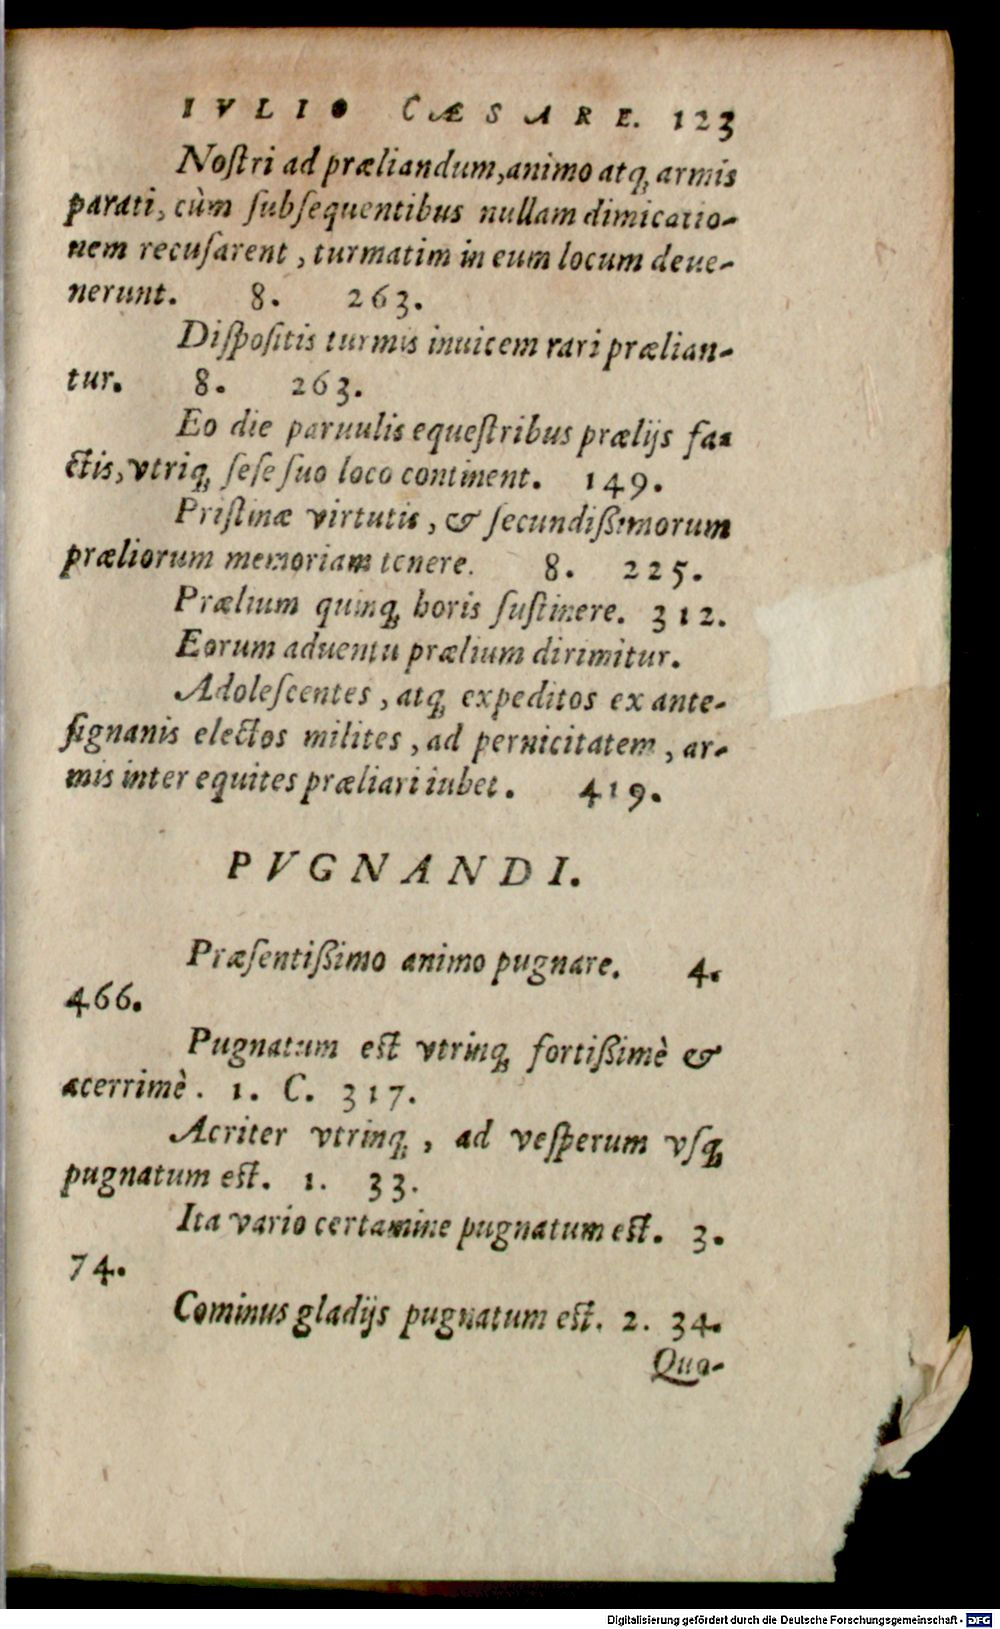 IVLIO CÆSARE. 123
Noſtri ad præliandum, animo atq; armis
parati, cùm ſubſequentibus nullam dimicatio-
nem recuſarent, turmatim in eum locum deue-
nerunt. 8. 263.
Diſpoſitis turmis inuicem rari prælian-
tur. 8. 263.
Eo die paruulis equeſtribus prælijs fa-
ctis, vtriq; ſeſe ſuo loco continent. 149.
Priſtinæ virtutis, & ſecundißimorum
præliorum memoriam tenere. 8. 225.
Prælium quinq; horis ſuſtinere. 312.
Eorum aduentu prælium dirimitur.
Adoleſcentes, atq; expeditos ex ante-
ſignanis electos milites, ad pernicitatem, ar-
mis inter equites præliari iubet. 419.
PVGNANDI.
Præſentißimo animo pugnare. 4.
466.
Pugnatum est vtrinq; fortißimè &
acerrimè. 1. C. 317.
Acriter vtrinq;, ad veſperum vſq;
pugnatum est. 1. 33.
Ita vario certamine pugnatum est. 3.
74.
Cominus gladijs pugnatum est. 2. 34.
Qua-
Digitalisierung gefördert durch die Deutsche Forschungsgemeinschaft - DFG